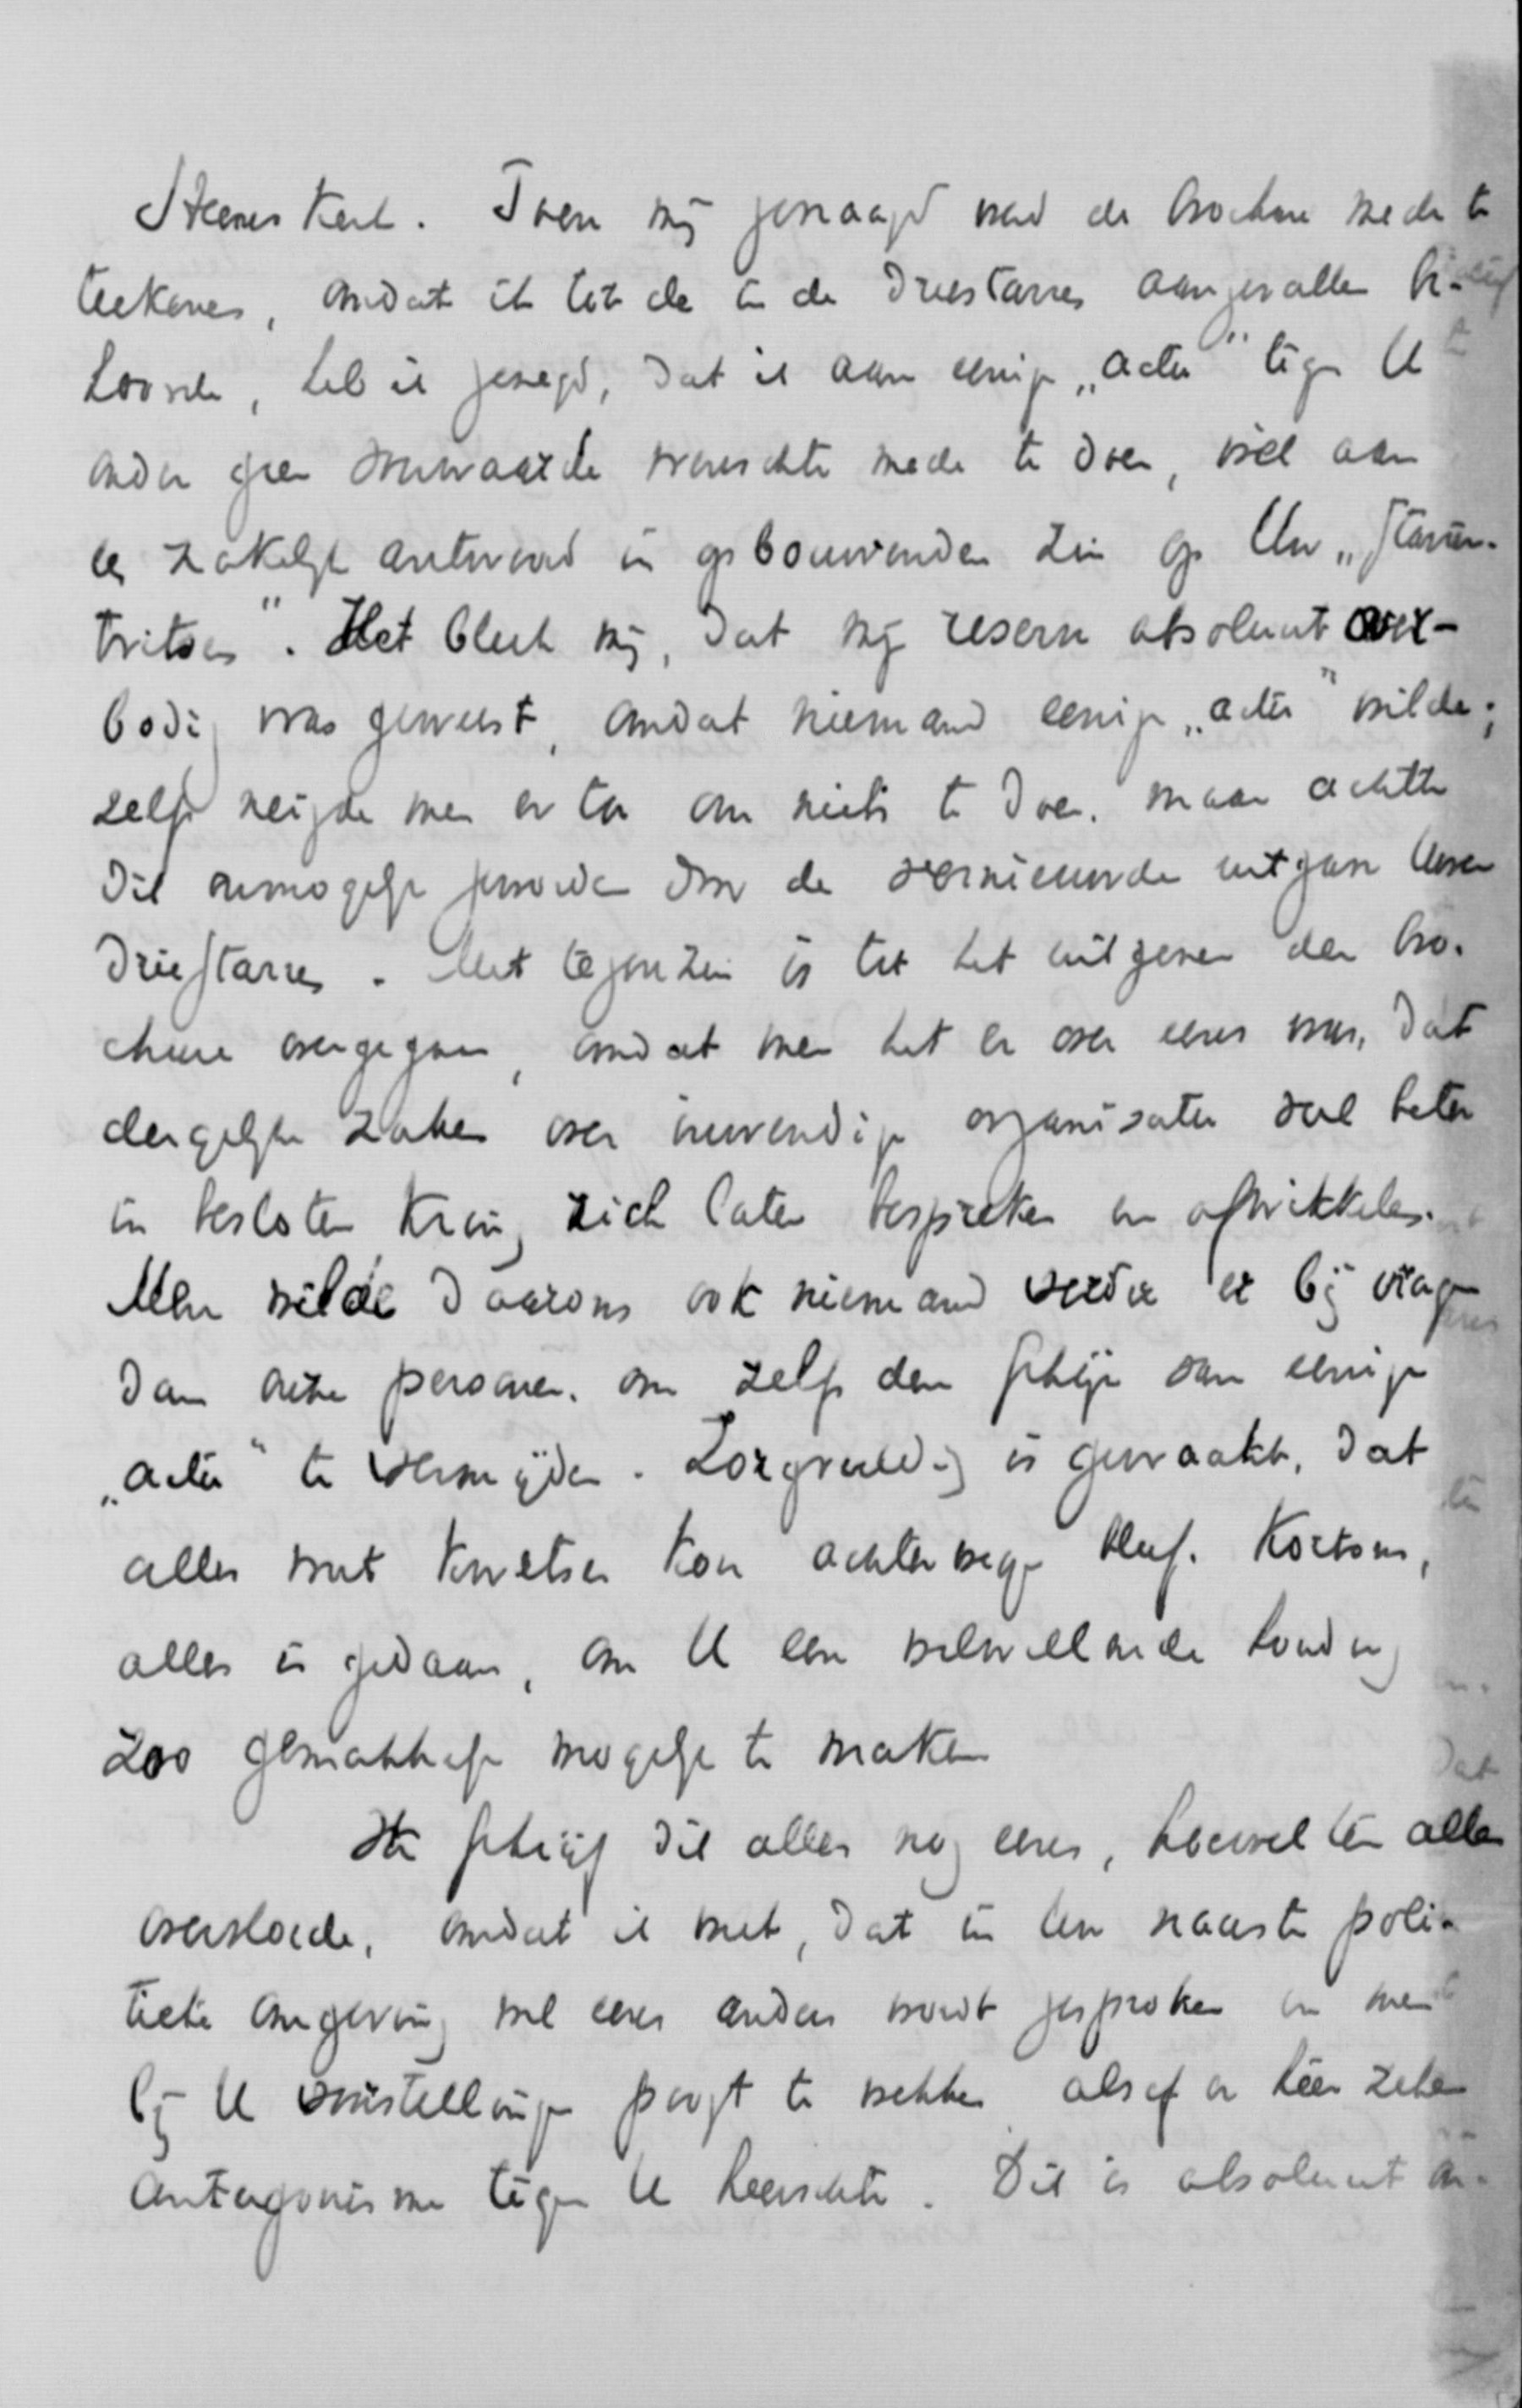 Heeres kerk. Toen mij gevraagd werd de brochure mede te
teekenen, omdat ik tot de in de Driestarren aangevallen
hoorde, heb ik gezegd, dat ik aan eenige „actie" tegen U
onder geen voorwaarde wenschte mede te doen, wel aan
een zakelijk antwoord in opbouwenden zin op Uw „Starren-
critiek". Het bleek mij, dat mijn reserve absoluut over-
bodig was geweest, omdat niemand eenige „actie" wilde;
zelfs neigde men er toe om niets te doen, maar achtte
dit onmogelijk geworden door de vernieuwde uitgave Uwer
Driestarren. Met tegenzin is tot het uitgeven der bro-
chure overgegaan, omdat men het er over eens was, dat
dergelijke zaken over inwendige organisatie veel beter
in besloten kring zich laten bespreken en afwikkelen.
Men wilde daarom ook niemand verder er bij vragen
dan deze personen, om zelfs den schijn van eenige
„actie" te vermijden. Zorgvuldig is gewaakt, dat
alles wat kwetsen kon achterwege bleef. Kortom,
alles is gedaan, om U een welwillende houding
zoo gemakkelijk mogelijk te maken
Ik schrijf dit alles nog eens, hoewel ten allen
overvloede, omdat ik weet, dat in Uw naaste poli-
tieke omgeving wel eens anders wordt gesproken en men
bij U voorstellingen poogt te wekken alsof er hier zeker
antagonisme tegen U heerschte. Dit is absoluut on-